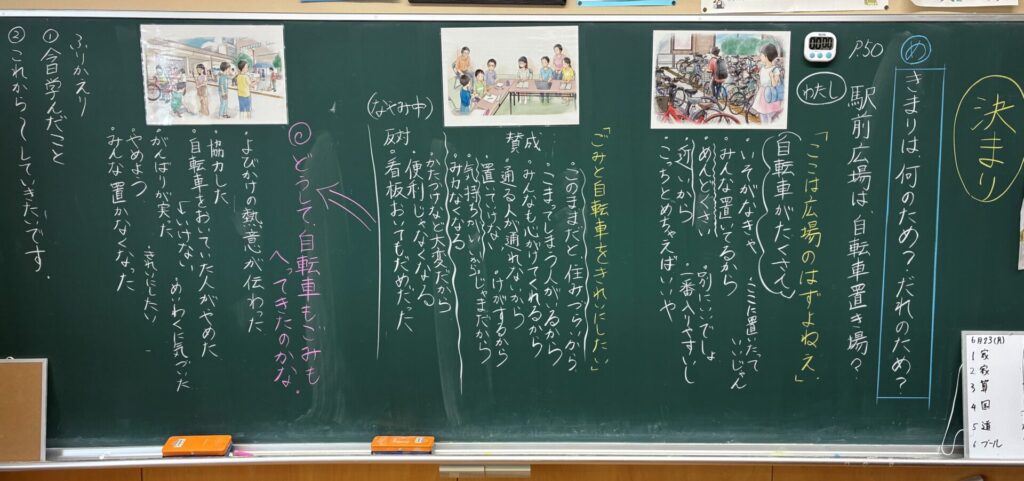 決まり
め
きまりは、何のため?だれのため?
P.50
駅前広場は、自転車置き場?
わたし
「ここは広場のはずよねえ」
自転車がたくさん
・いそがなきゃ
・ここに置いたっていいじゃん
・みんな置いてるから
・別にいいでしょ
・めんどくさい
・近いから
・一番入りやすい
・こっちとめちゃえばいいや
「ごみと自転車をきれいにしたい」
賛成
・このままだと住みづらいから
・こまってしまう人がいるから
・みんなも心がけてくれるから
・通る人が通れないから
・置いていけない
・けがするから
・気持ちがいいから
・じゃまだから
・みなくなる
・かたづけないと大変だから
・便利じゃなくなる
(なやみ中)
反対
・看板おてもだめだった
◎どうして、自転車もごみも
へってきたのかな。
・よびかけの熱意が伝わった
・協力した
・自転車をおいていた人がやめた
いけない
めいわくに気づいた
・がんばりが実った
・きれいにしたい
・やめよう
・みんな置かなくなった
ふりかえり
①今日学んだこと
②これから〜していきたいです。
6月23(月)
1 家
2 家
3 算
4 国
5 道
6 プール